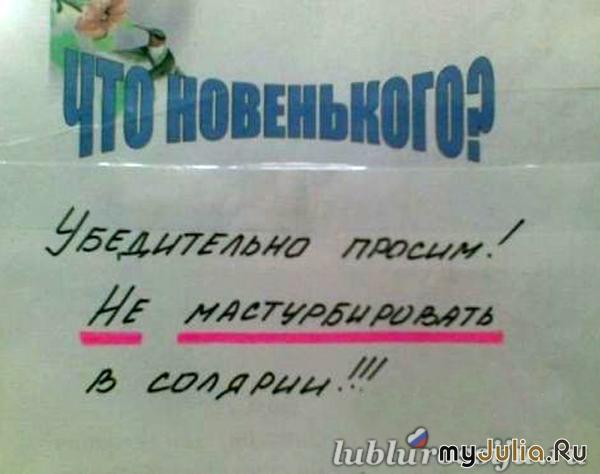 ЧТО НОВЕНЬКОГО?
УБЕДИТЕЛЬНО ПРОСИМ!
НЕ МАСТУРБИРОВАТЬ
В СОЛЯРИИ!!!
myJulia.Ru